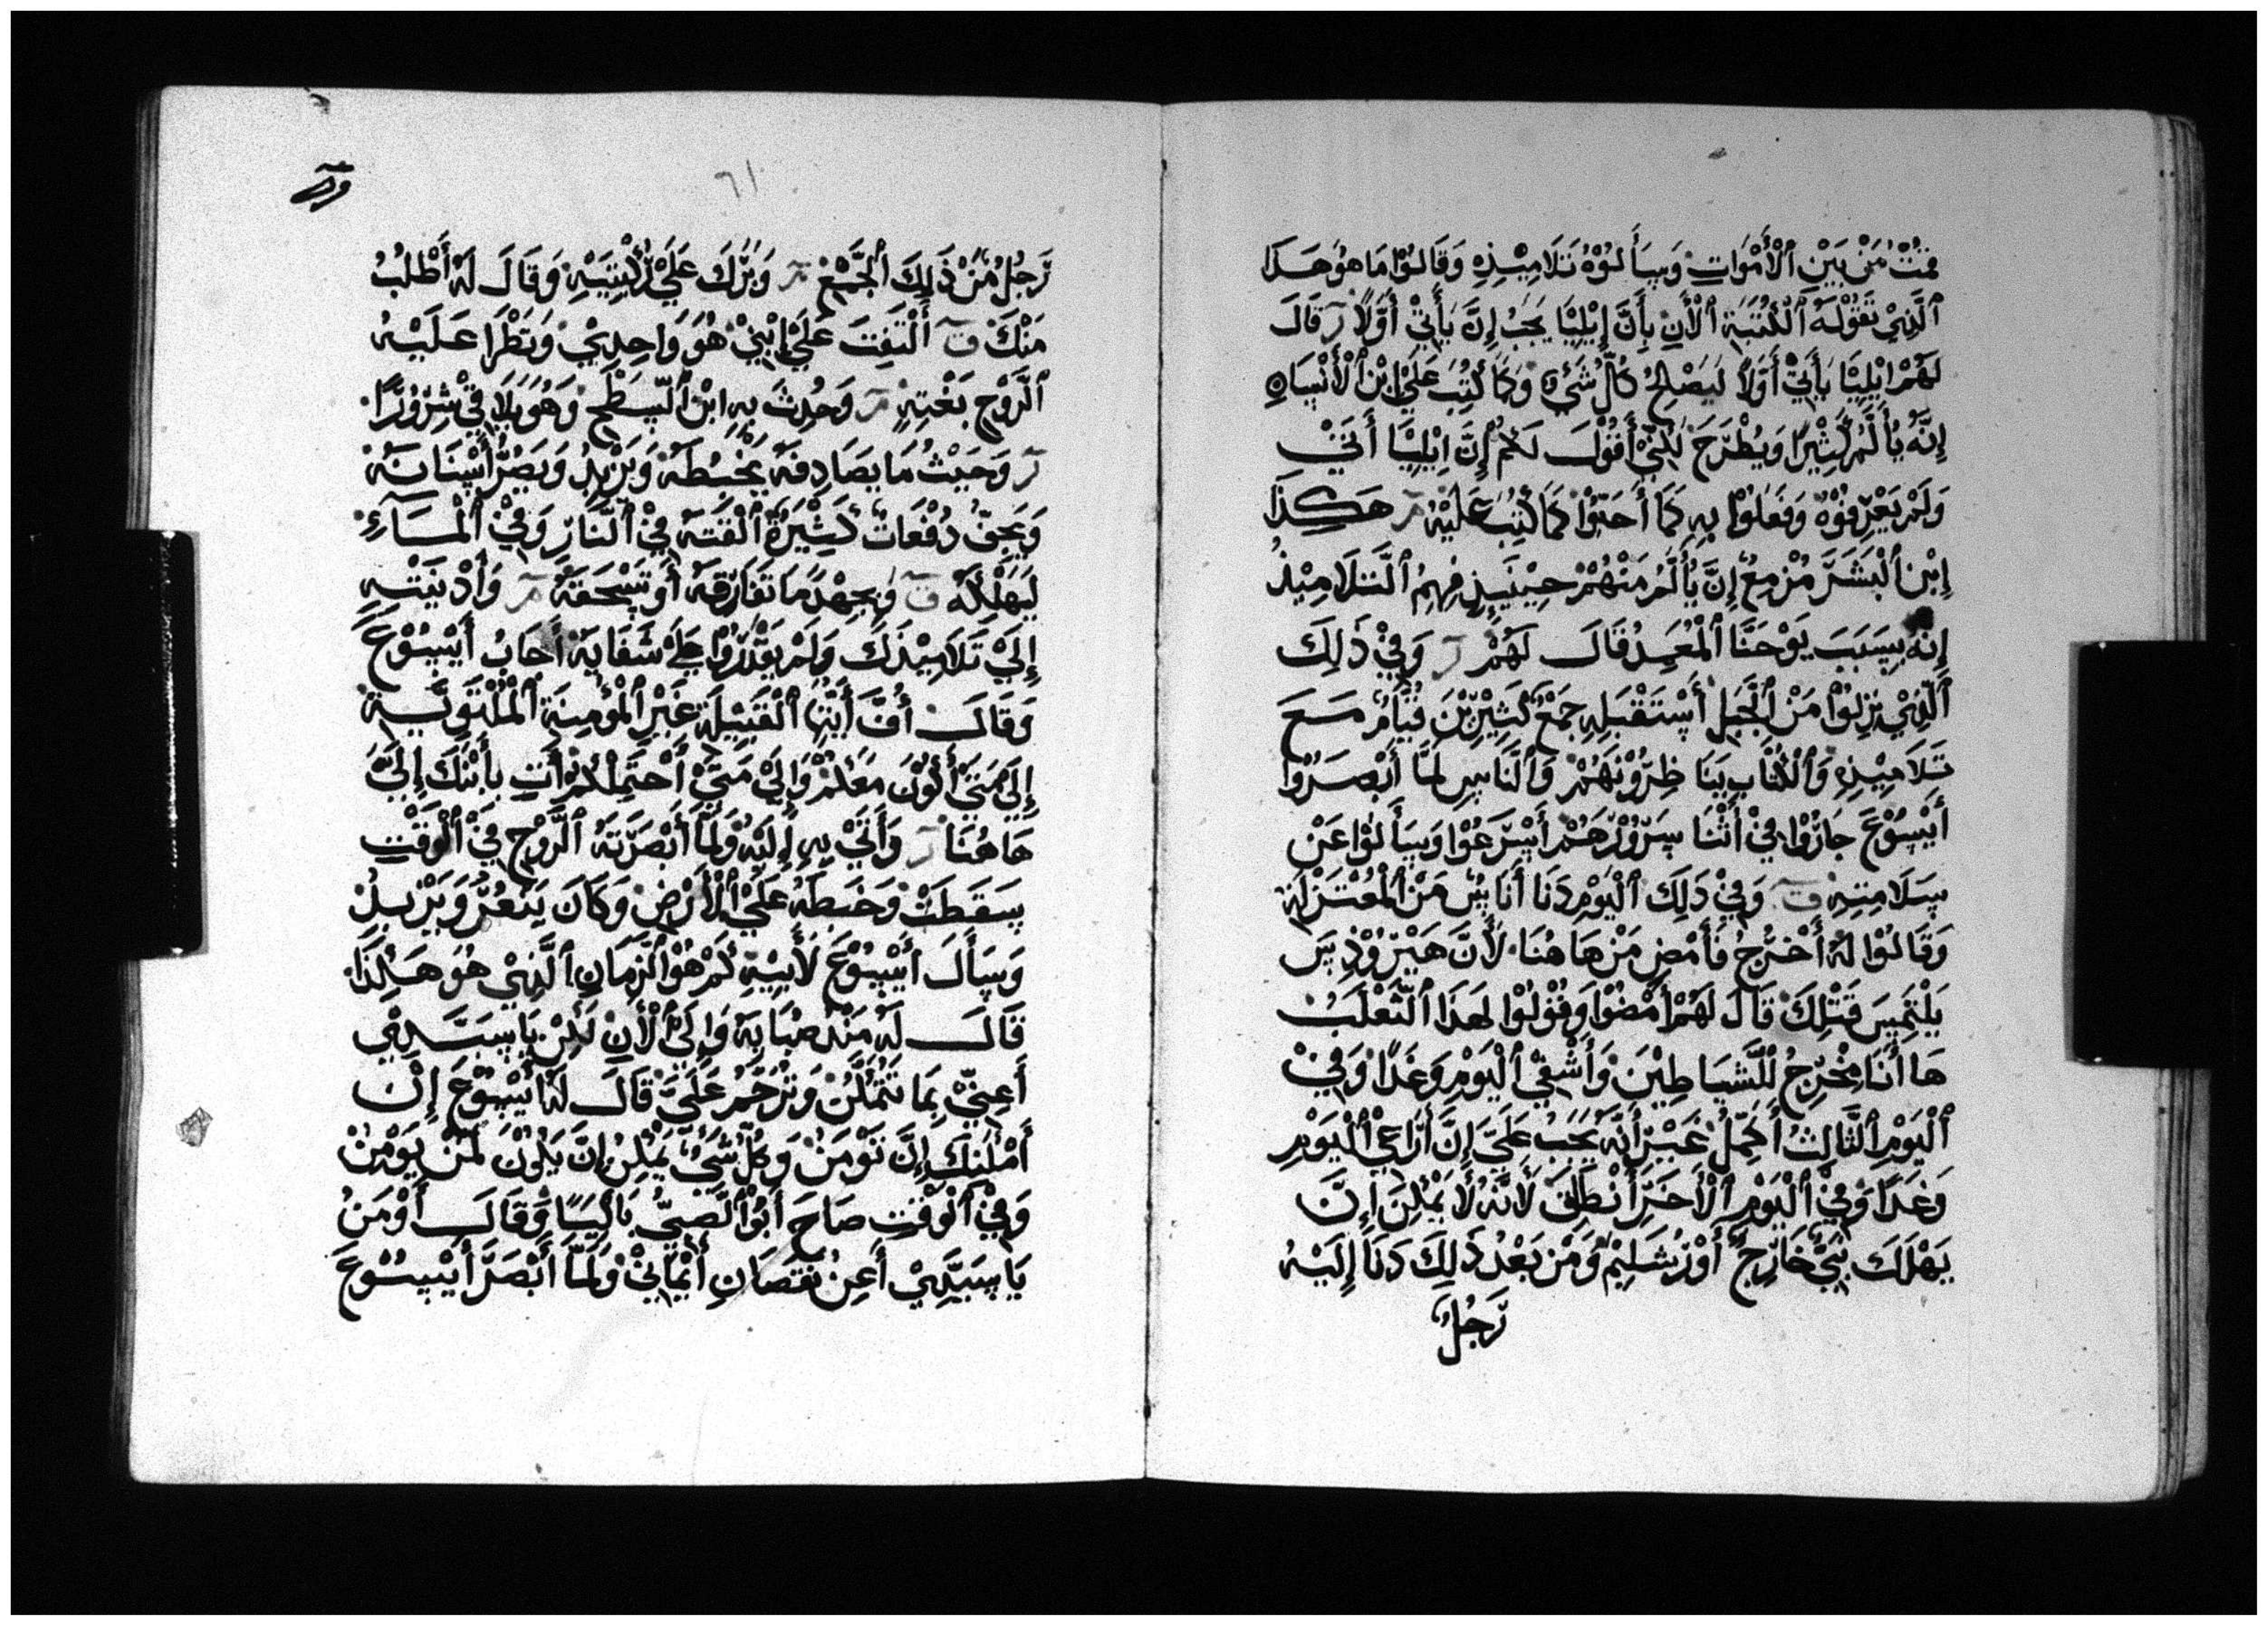 مُتُ مَنْ بَيْنِ ٱلْأَمْوَاتِ وَسَأَلُوْهُ تَلَامِيْذِهِ وَقَالُوْا مَا هُوَ هَذَا
ٱلَّذِيْ تَقُوْلَهُ ٱلْكُتُبَةِ ٱلْأَنِ بِأَنَّ إِيْلِيَّا يَجَبُ إِنَّ يَأْتِيْ أَوَّلًا قَالَ
لَهُمْ إِيْلِيَّا يَأْتِيْ أَوَّلًا لَيَصْلِحُ كُلَّ شَيْءٍ وَكَمَا كُتِبَ عَلَيْ إِبْنِ ٱلْأَنْسَانِ
إِنَّهُ يُأَلَّمُ كَثِيْرًا وَيُطْرَحَ لَكِنِّيْ أَقُوْلَ لَكُمْ إِنَّ إِيْلِيَّا أَتَيْ
وَلَمْ يَعْرِفُوْهُ وَفَعَلُوْا بِهِ كَمَا أَحَبُّوْا كَمَا كُتِبَ عَلَيْهِ هَكَذَا
إِبْنِ ٱلْبَشَرَ مُزْمِعٌ إِنَّ يُأَلَّمُ مَنْهُمْ حِيْنَيِذٍ فِهِمُ ٱلتَّلَامِيْذُ
إِنَّهُ بِسَبَبَ يَوْحَنَّا ٱلْمُعَمِدُ قَالَ لَهُمْ وَفِيْ ذَلِكَ
ٱلَّذِيْ نِزِلُوْا مَنْ ٱلْجَبَلِ أَسْتَقْبَلِهِ جَمْعٌ كَثِيْرِيْنَ قُيَّامٌ مَعَ
تَلَامِيْذِهِ وَٱلْكُتَّابِ يَنَا ظِرُوْنَهُمْ وَٱلنَّاسِ لَمَّا أَبْصَرُوْا
أَيْسُوْعَ جَازُوْا فِيْ أَثْنَا سَرُوْرَهُمْ أَسْرَعُوْا وَسَأَلُوْا عَنْ
سَلَامَتِهِ وَفِيْ ذَلِكَ ٱلْيَوْمِ دَنَا أَنَاسٌ مَنْ ٱلْمُعْتَزْلَةِ
وَقَالُوْا لَهُ أَخْرُجُ فَأَمْضِ مَنْ هَا هُنَا لَأَنَّ هَيْرُوْذِسَ
يَلْتَمِسَ قَتْلِكَ قَالَ لَهُمْ أَمْضُوْا وَقُوْلُوْا لِهَذَا ٱلثَّعْلَبُ
هَا أَنَا مُخْرِّجُ لِلشَّيَاطِيْنَ وَأَشْفِيْ ٱلْيَوْمِ وَغَدًا وَفِيْ
ٱلْيَوْمِ ٱلثَّالِثُ أُكَمِّلُ غَيْرَ أَنَّهُ يَجَبُ عَلَيَّ إِنَّ أَرَاعِيْ ٱلْيَوْمِ
وَغَدًا وَفِيْ ٱلْيَوْمِ ٱلْأَخَرَ أَنْطَلِقَ لَأَنَّهُ لَا يَمْكِنَ إِنَّ
يَهْلَكَ نَبِيٌّ خَارِجَ أُوْرُشَلِيْمَ وَمَنْ بَعْدُ ذَلِكَ دَنَا إِلَيْهُ
رَّجُلٌ
٦١
رَّجُلٌ مَنْ ذَلِكَ ٱلْجَمْعِ وَبَرَكَ عَلَيْ رُكْبَتِيْهِ وَقَالَ لَهُ أَطْلُبُ
مَنْكَ أَلْتَفِتَ عَلَيْ إِبْنِيْ هُوَ وَاحِدِيْ وَيَطْرَا عَلَيْهُ
ٱلرَّوْحِ بَغْتِهِ وَحُدِثَ بِهِ إِبْنِ ٱلسَّطْحِ وَهُوَ بَلَايَا فِيْ شِرُوْرًا
وَحَيْثُ مَا يَصَادِفَهُ يَخْبُطَهُ وَيَزْبِدُ وَيَصُرُّ أَسْنَانَهُ
وَيَجِفُّ دُفْعَاتٌ كَثِيْرَةٌ أَلْقَتَهُ فِيْ ٱلنَّارِ وَفِيْ ٱلْمَآءِ
لَيَهْلِكَهُ وَبِجِهْدٍ مَا تَفَارِقَهُ أَوْ تَسْحَقَهُ وَأَدْنَيْتَهِ
إِلَيْ تَلَامِيْذَكَ وَلَمْ يَقْدَرُوْا عَلَيْ شَفَايَهُ أَجَابُ أَيْسُوْعَ
وَقَالَ أُفَّ أَيَّتَهَا ٱلْقَبِيْلَةِ غَيْرِ ٱلْمُؤْمِنَةِ ٱلْمُلْتَوِيَّةِ
إِلَيْ مَتَيْ أَكُوْنَ مَعَكُمْ وَإِلَيْ مَتَيْ أَحْتَمِلُكُمْ أَتِ بِأَبْنَكَ إِلَيَّ
هَا هُنَا وَأَتَيْ بِهِ إِلَيْهُ وَلَمَّا أَبْصَرَتَهُ ٱلرَّوْحِ فِيْ ٱلْوَقْتِ
سَقَطَتْ وَخَبَطَهُ عَلَيْ ٱلْأَرْضِ وَكَانَ يَتَعَرُّ وَيَزْبِدُ
وَسَأَلَ أَيْسُوْعَ لَأَبِيْهِ كَمْ هُوَ ٱلزَّمَانِ ٱلَّذِيْ هُوَ هَكَذَا
قَالَ لَهُ مَنْذُ صُبَايَهُ وَإِلَيْ ٱلْأَنِ لَكِنْ يَا سَيِّدِيْ
أَعِنِّيْ بِمَا تَتَمَكَّنْ وَتُرَحَّمُ عَلَيَّ قَالَ لَهُ أَيْسُوْعَ إِنْ
أَمْكَنَكِ إِنَّ تَؤْمَنْ وَكُلَّ شَيْءٍ يَمْكِنُ إِنَّ يَكُوْنَ لَمَنْ يَوْمِنْ
وَفِيْ ٱلْوَقْتِ صَاحَ أَبُوْ ٱلصَّبِيِّ بَاكِيَا وَقَالَ أُوْمَنُ
يَا سَيِّدِيْ أَعِنْ نُقَصَانِ أَيْمَانِيْ وَلَمَّا أَبْصَرَ أَيْسُوْعَ